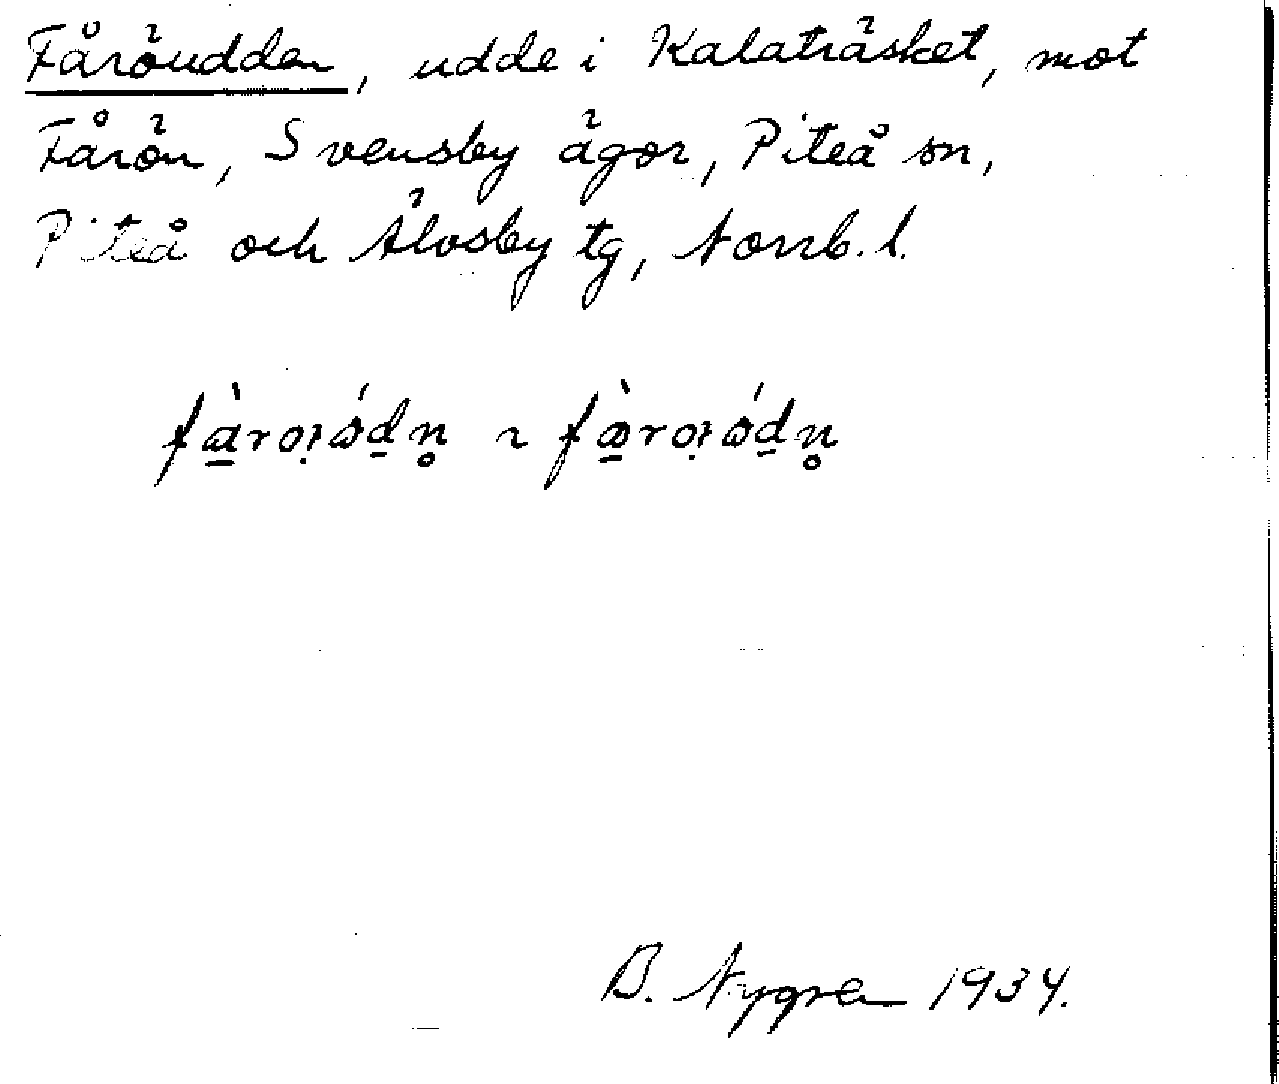 Fåröudden, udde i Kalaträsket, mot
Fårön, Svensby ägor, Piteå sn,
Piteå och Älvsby tg, Norrb. l.
B. Nygren 1934.